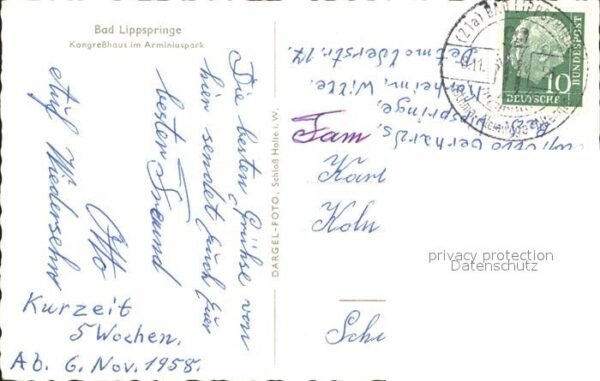 Bad Lippspringe
Kongreßhaus im Arminiuspark
Die besten Grüße von
hier sendet Euch Euer
besten Freund
Otto
Auf Wiedersehn
Kurzeit
5 Wochen.
Ab. 6. Nov. 1958.
DARGEL-FOTO, Schloß Holte i. W.
(21a) BAD LIPPSPRINGE
10
DEUTSCHE
BUNDESPOST
Otto Gerhards,
Witte.
Detmolderstr. 14.
Fam
Karl
Köln
Sch
privacy protection
Datenschutz